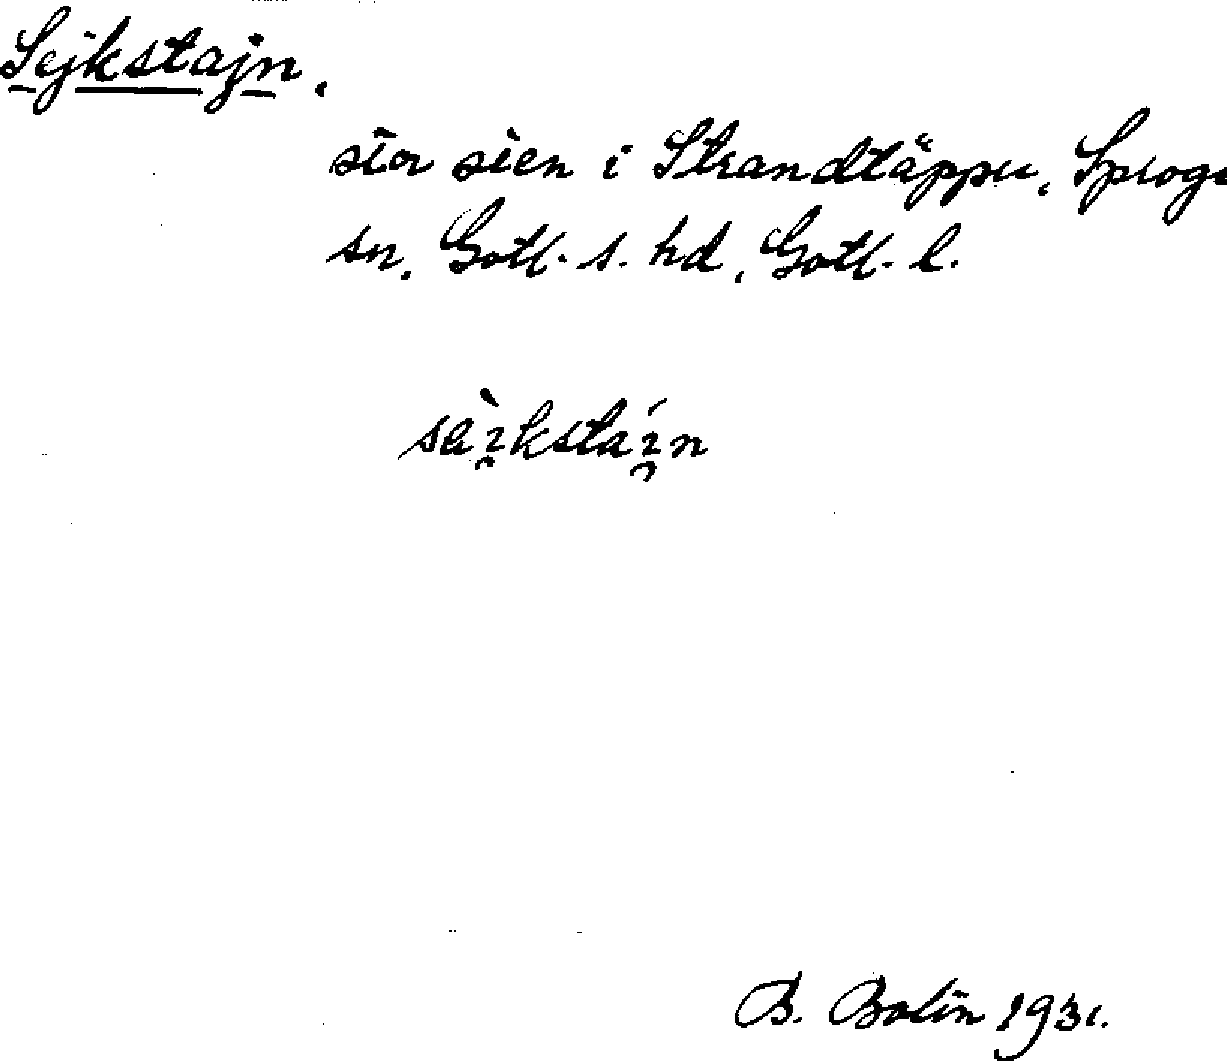 Sejkstajn.
stor sten i Strandtäppu, Sproge
sn, Gotl. s. hd, Gotl. l.
sèi̯kstái̯n
B. Bolin 1931.